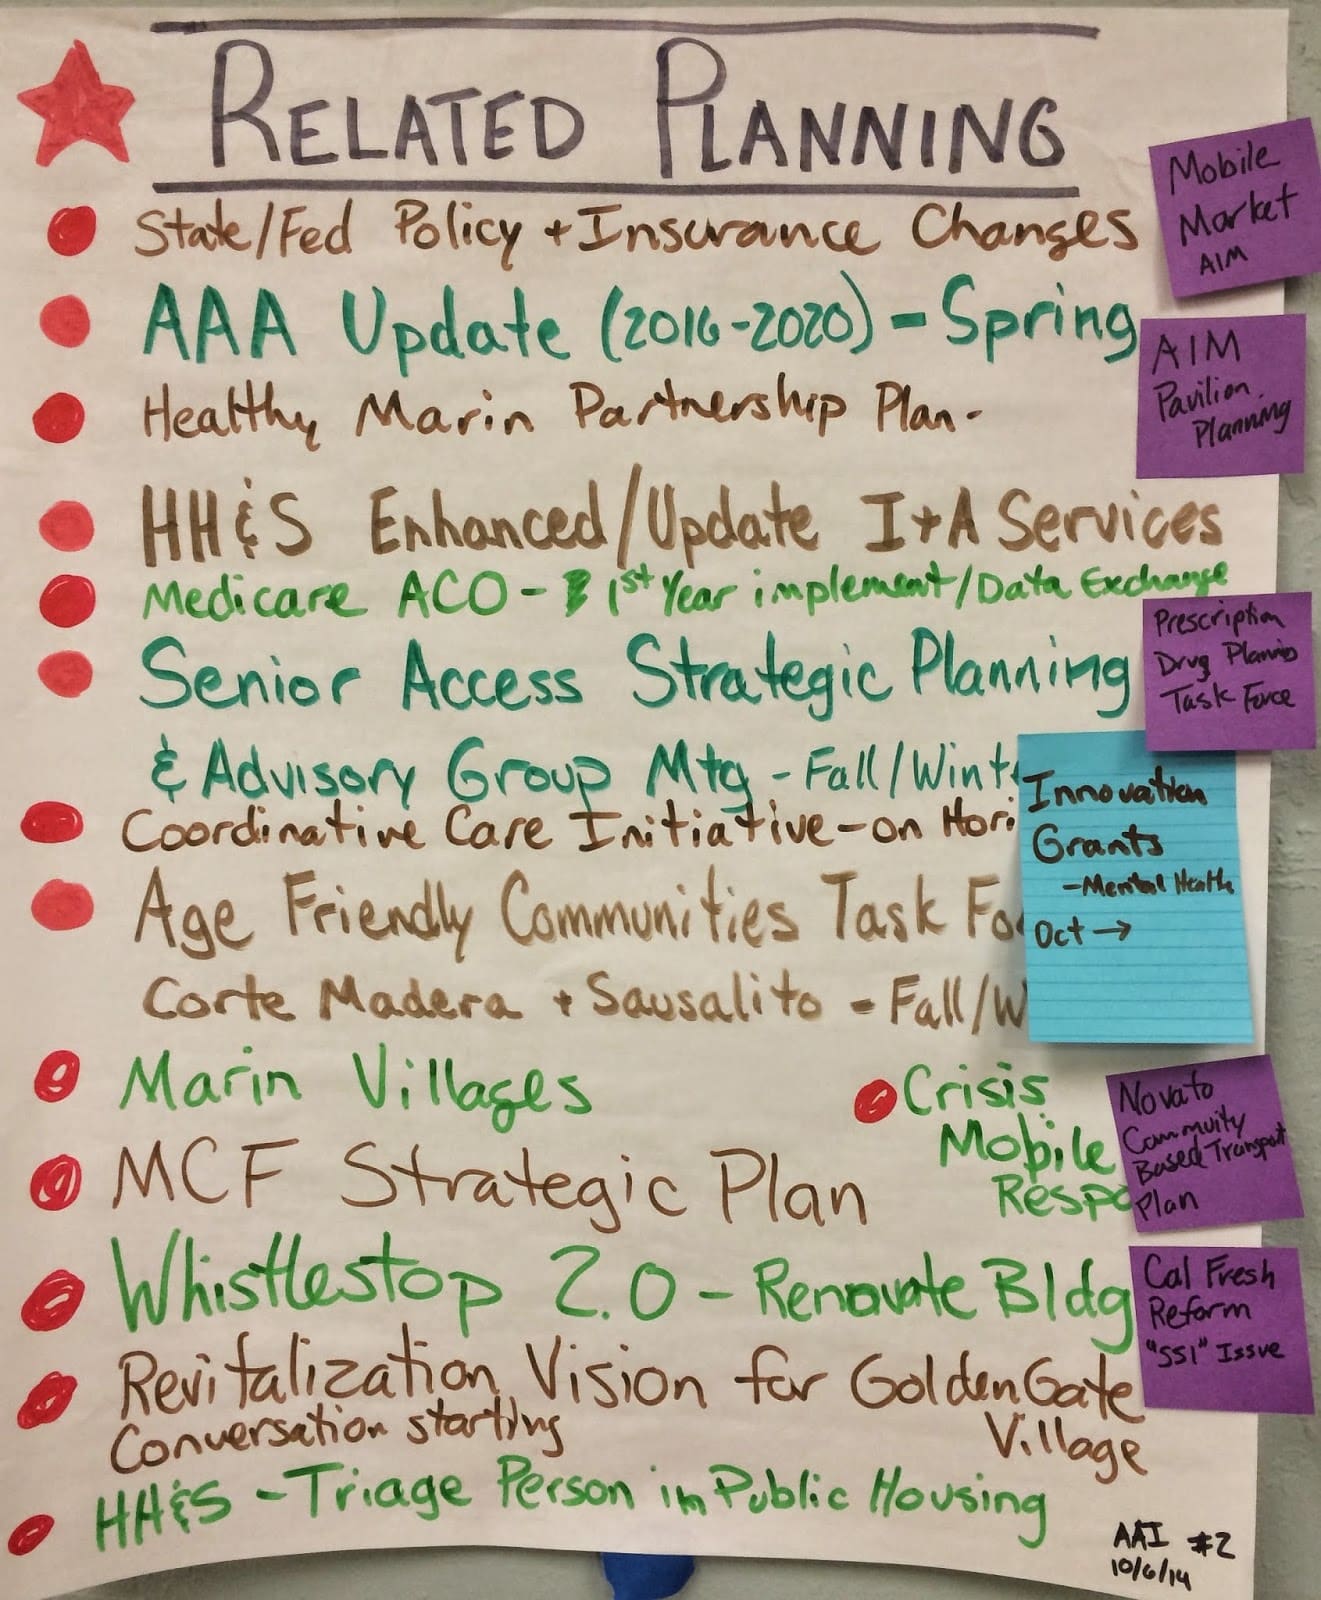 RELATED PLANNING
State/Fed Policy + Insurance Changes
AAA Update (2016-2020) - Spring
Healthy Marin Partnership Plan -
HH&S Enhanced/Update I+A Services
Medicare ACO - 1st Year implement/Data Exchange
Senior Access Strategic Planning
& Advisory Group Mtg - Fall/Wint
Coordinative Care Initiative - on Hori
Age Friendly Communities Task Fo
Corte Madera + Sausalito - Fall/W
Marin Villages
Crisis
Mobile
Respo
MCF Strategic Plan
Whistlestop 2.0 - Renovate Bldg
Revitalization Vision for Golden Gate
Village
Conversation starting
HH&S - Triage Person in Public Housing
AAI #2
10/6/14
Mobile
Market
AIM
AIM
Pavilion
Planning
Prescription
Drug Planning
Task Force
Innovation
Grants
-Mental Health
Oct →
Novato
Commuity
Based Transport
Plan
Cal Fresh
Reform
"SSI" Issue